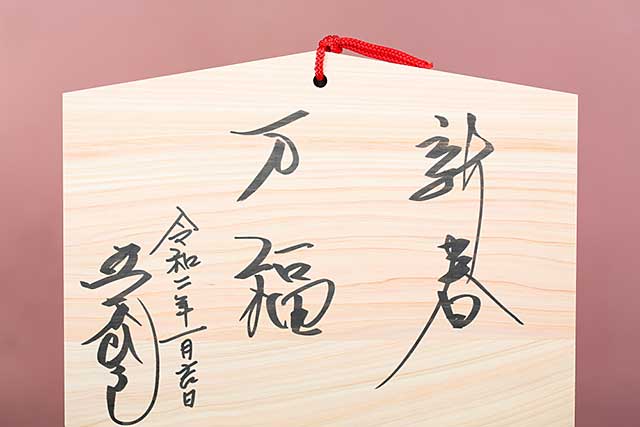 新春
万福
令和二年一月吉日